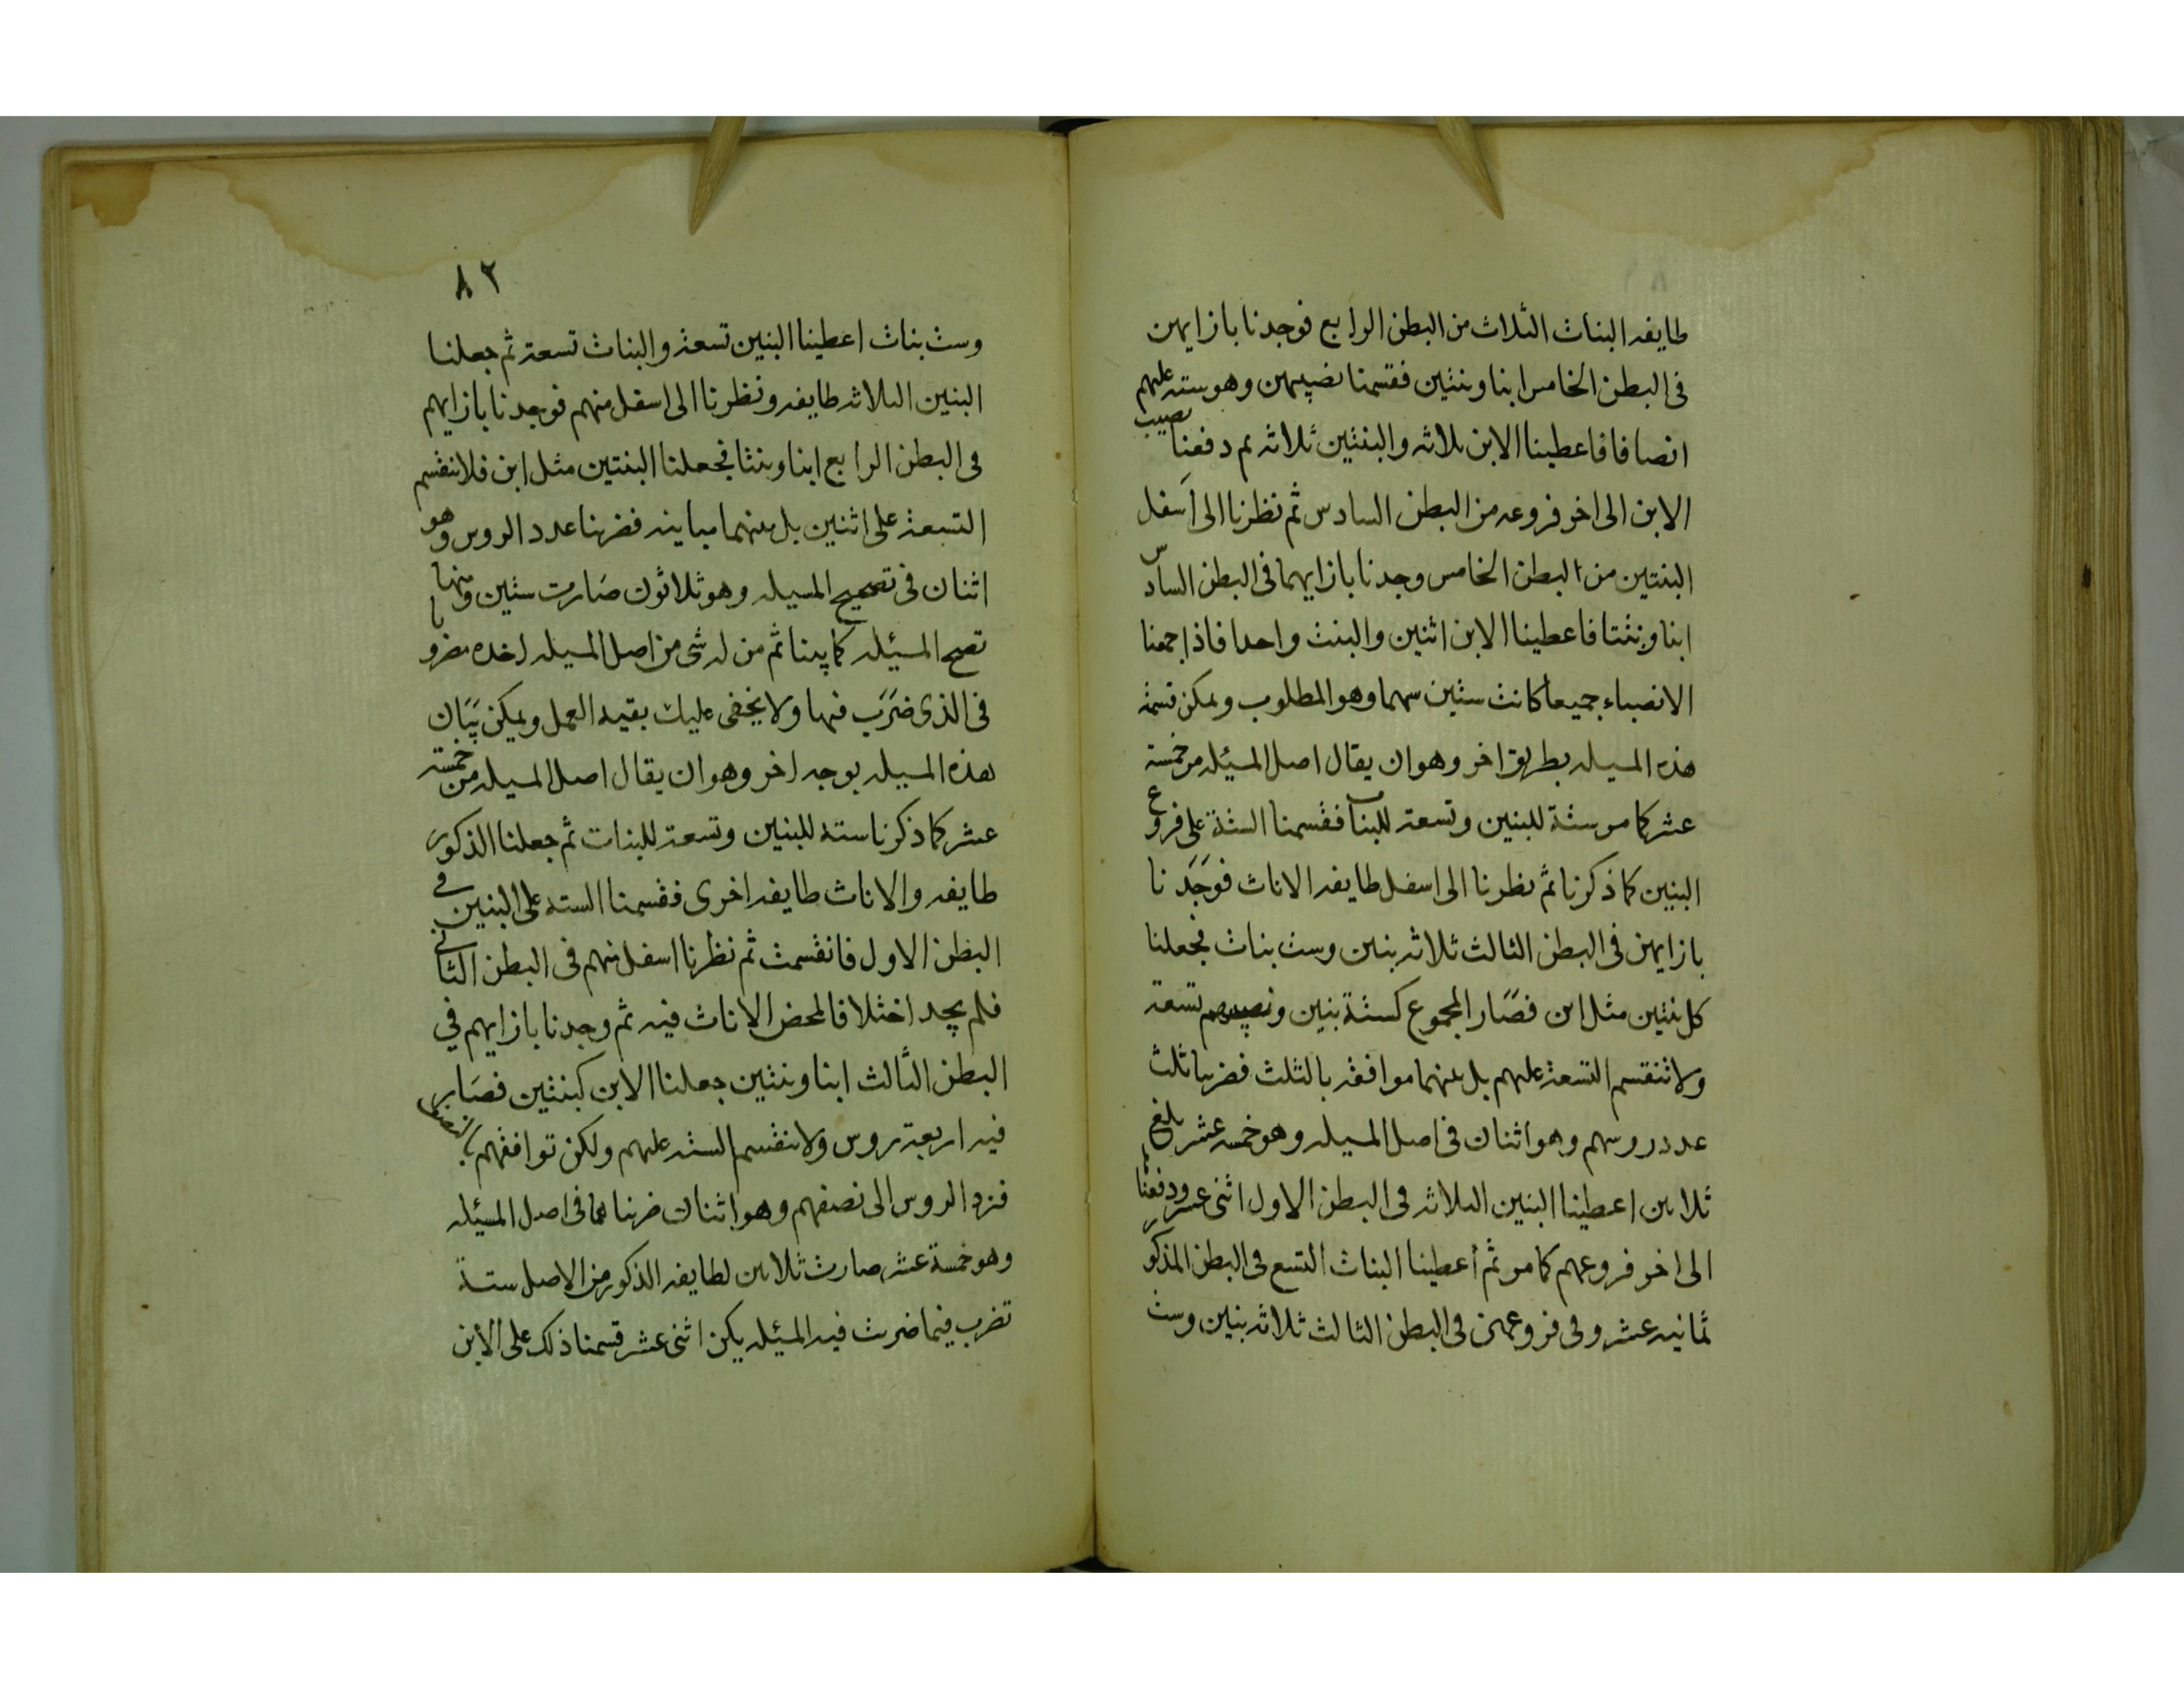 طايفه البنات الثلاث من البطن الرابع فوجدنا بازايهن
فى البطن الخامس ابنا وبنتين فقسمنا نصيبهن وهو سته عليهم
انصافا فاعطينا الابن ثلاثه والبنتين ثلاثه ثم دفعنا نصيب
الابن الى اخر فروعه من البطن السادس ثم نظرنا الى اسفل
البنتين من البطن الخامس وجدنا بازايهما فى البطن السادس
ابنا وبنتا فاعطينا الابن اثنين والبنت واحدا فاذا جمعنا
الانصباء جميعا كانت ستين سهما وهو المطلوب ويمكن قسمة
هذه المسيله بطريق اخر وهو ان يقال اصل المسيله من خمسة
عشر كما مر ستة للبنين وتسعة للبنات فقسمنا الستة على فروع
البنين كما ذكرنا ثم نظرنا الى اسفل طايفه الاناث فوجدنا
بازايهن فى البطن الثالث ثلاثه بنين وست بنات فجعلنا
كل بنتين مثل ابن فصار المجموع كستة بنين ونصيبهم تسعة
ولا تنقسم التسعة عليهم بل بينهما موافقه بالثلث فضربنا ثلث
عدد روسهم وهو اثنان فى اصل المسيله وهو خمسه عشر بلغ
ثلاثين اعطينا البنين الثلاثه فى البطن الاول اثنى عشر ودفعنا
الى اخر فروعهم كما مر ثم اعطينا البنات التسع فى البطن المذكور
ثمانيه عشر وفى فروعهن فى البطن الثالث ثلاثه بنين وست
٨٢
وست بنات اعطينا البنين تسعة والبنات تسعة ثم جعلنا
البنين الثلاثه طايفه ونظرنا الى اسفل منهم فوجدنا بازايهم
فى البطن الرابع ابنا وبنتا فجعلنا البنتين مثل ابن فلا تنقسم
التسعة على اثنين بل بينهما مباينه فضربنا عدد الروس وهو
اثنان فى تصحيح المسيله وهو ثلاثون صارت ستين ومنها
تصح المسئله كما بينا ثم من له شى من اصل المسيله اخذه مضروبا
فى الذى ضرب فيها ولا يخفى عليك بقيه العمل ويمكن بيان
هذه المسيله بوجه اخر وهو ان يقال اصل المسيله من خمسة
عشر كما ذكرنا ستة للبنين وتسعة للبنات ثم جعلنا الذكور
طايفه والاناث طايفه اخرى فقسمنا الستة على البنين فى
البطن الاول فانقسمت ثم نظرنا اسفل منهم فى البطن الثانى
فلم يجد اختلافا لمحض الاناث فيه ثم وجدنا بازايهم في
البطن الثالث ابنا وبنتين جعلنا الابن كبنتين فصار
فيه اربعة روس ولا تنقسم الستة عليهم ولكن توافقهم بالنصف
فنرد الروس الى نصفهم وهو اثنان ضربناهما فى اصل المسئله
وهو خمسة عشر صارت ثلاثين لطايفه الذكور من الاصل ستة
تضرب فيما ضربت فيه المسئله يكن اثنى عشر قسمنا ذلك على الابن